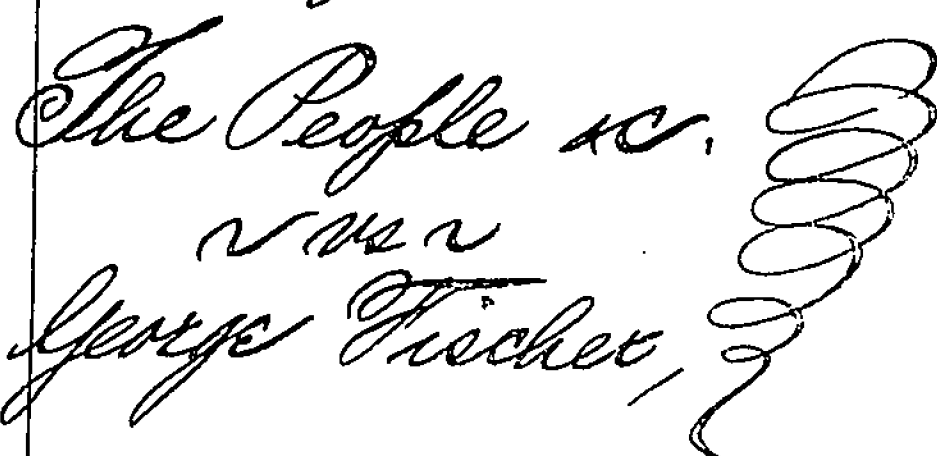 The People &c.
~ vs ~
George Fischer,